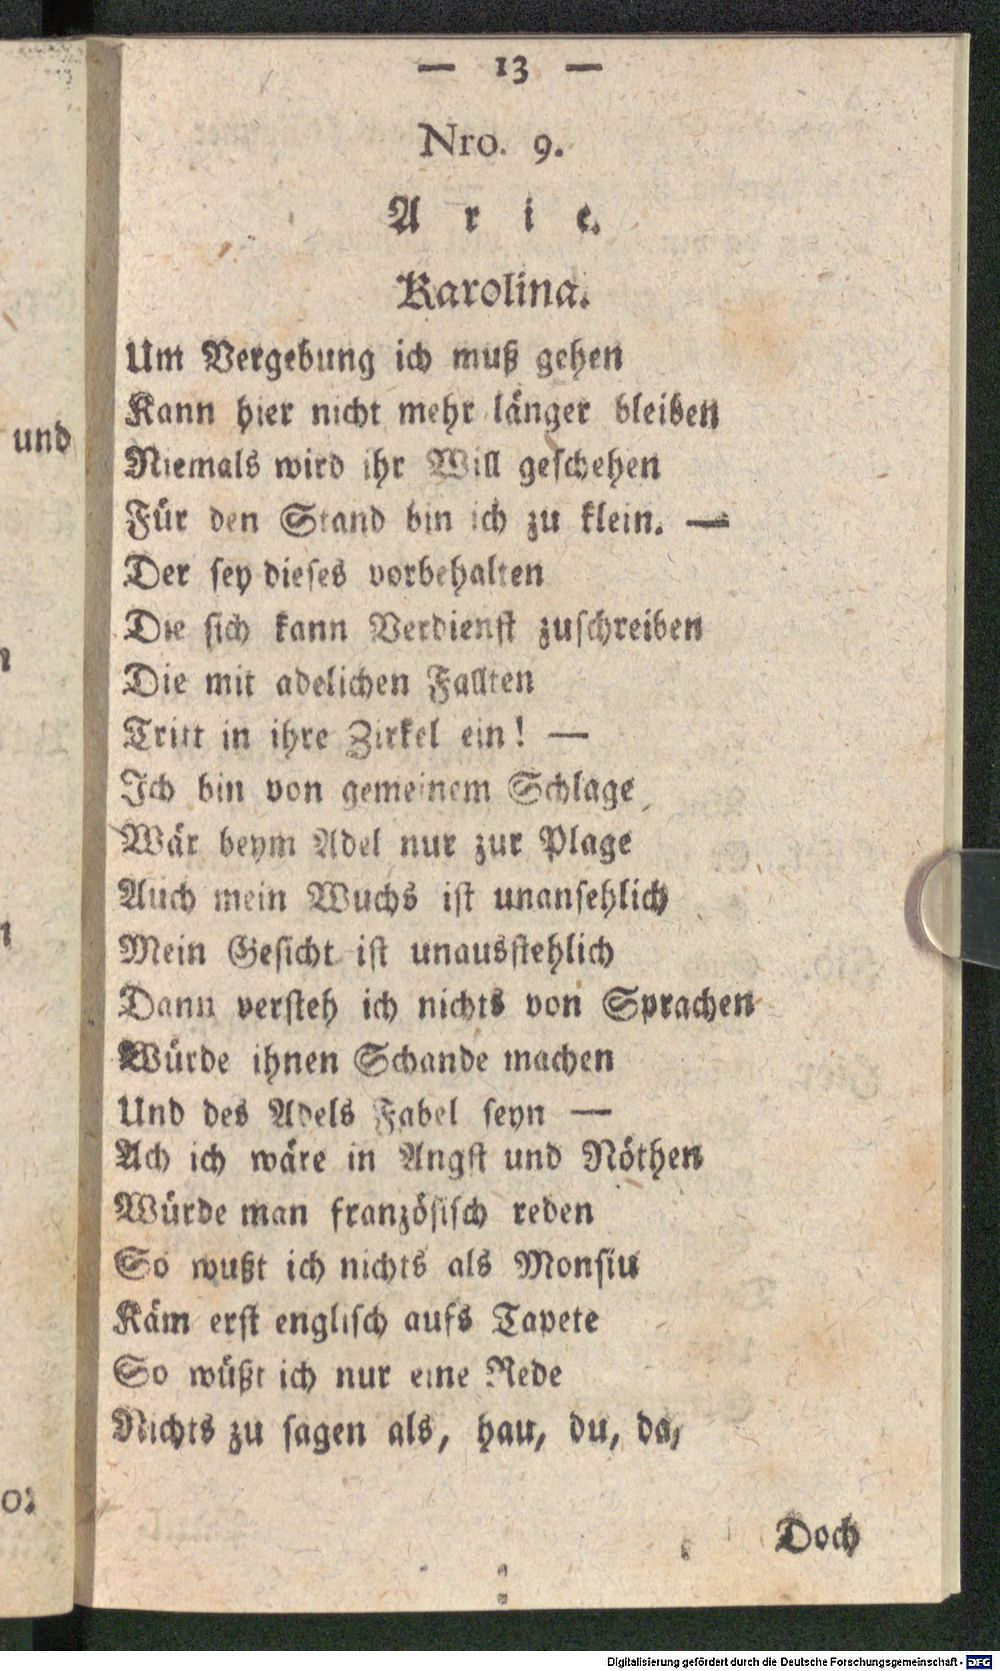 — 13 —
Nro. 9.
Arie.
Karolina.
Um Vergebung ich muß gehen
Kann hier nicht mehr länger bleiben
Niemals wird ihr Will geschehen
Für den Stand bin ich zu klein. —
Der sey dieses vorbehalten
Die sich kann Verdienst zuschreiben
Die mit adelichen Fallten
Tritt in ihre Zirkel ein! —
Ich bin von gemeinem Schlage
Wär beym Adel nur zur Plage
Auch mein Wuchs ist unansehlich
Mein Gesicht ist unausstehlich
Dann versteh ich nichts von Sprachen
Würde ihnen Schande machen
Und des Adels Fabel seyn —
Ach ich wäre in Angst und Nöthen
Würde man französisch reden
So wußt ich nichts als Monsiu
Käm erst englisch aufs Tapete
So wüßt ich nur eine Rede
Nichts zu sagen als, hau, du, da,
Doch
und
n
n
o:
Digitalisierung gefördert durch die Deutsche Forschungsgemeinschaft - DFG